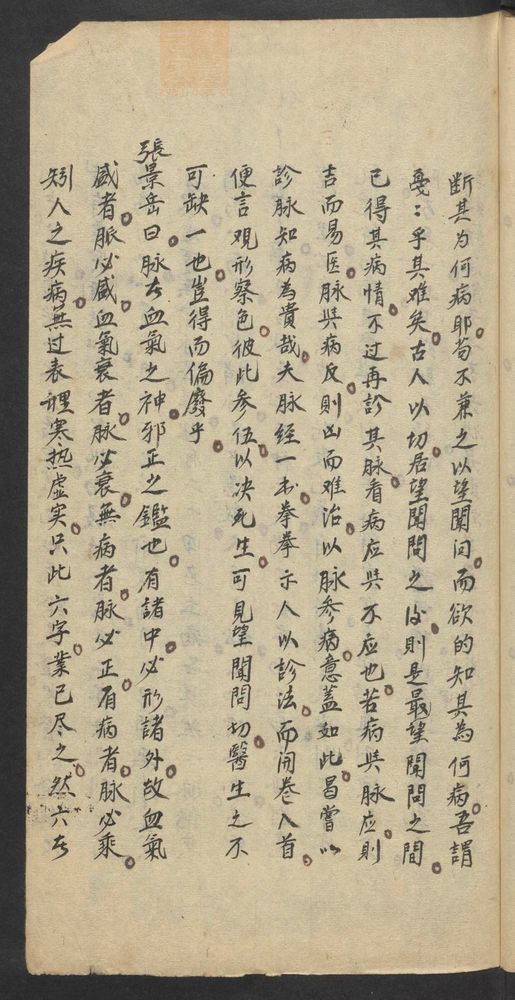 断其为何病耶苟不兼之以望闻问而欲的知其为何病吾謂
戞：乎其难矣古人以切居望聞問之后則是最望聞問之間
已得其病情不过再診其脉看病应與不应也若病與脉应則
吉而易医脉與病反則凶而难治以脉参病意蓋如此曷嘗以
診脉知病為貴哉夫脉經一书拳拳示人以診法而開卷入首
便言观形察色彼此参伍以决死生可見望聞問切醫生之不
可缺一也豈得而偏廢乎
張景岳曰脉者血氣之神邪正之鑑也有諸中必形諸外故血氣
盛者脈必盛血氣衰者脉必衰無病者脉必正有病者脉必乘
矧人之疾病無过表裡寒热虚实只此六字業已尽之然六者